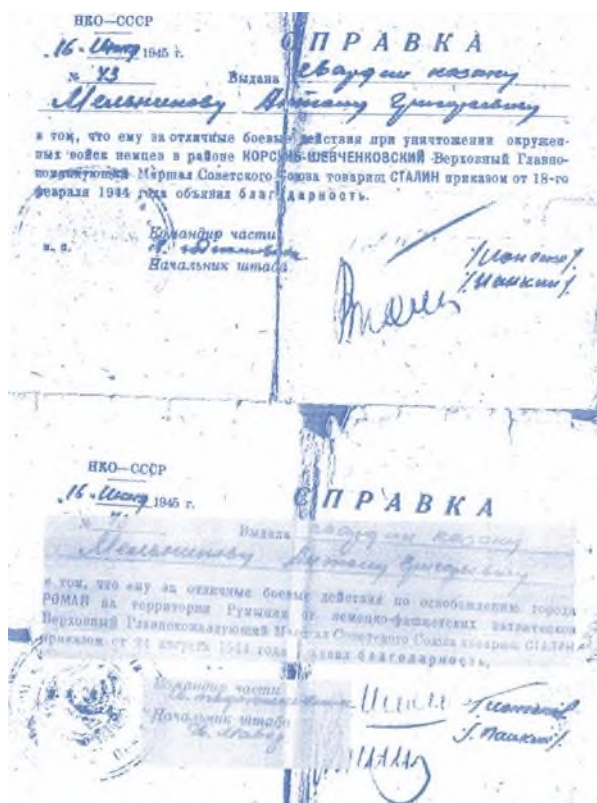 НКО—СССР
„16“ 1945 г.
СПРАВКА
№ 43
Выдана гвардии казаку
Мельникову Антону Григорьевичу
в том, что ему за отличные боевые действия при уничтожении окружен-
ных войск немцев в районе КОРСУНЬ-ШЕВЧЕНКОВСКИЙ Верховный Главно-
командующий Маршал Советского Союза товарищ СТАЛИН приказом от 18-го
февраля 1944 года объявил благодарность.
Командир части
м. п.
Начальник штаба
НКО—СССР
„16“ 1945 г.
СПРАВКА
№
Выдана гвардии казаку
Мельникову Антону Григорьевичу
в том, что ему за отличные боевые действия по освобождению города
РОМАН на территории Румынии от немецко-фашистских захватчиков
Верховный Главнокомандующий Маршал Советского Союза товарищ СТАЛИН
приказом от 21 августа 1944 года объявил благодарность.
Командир части
Начальник штаба